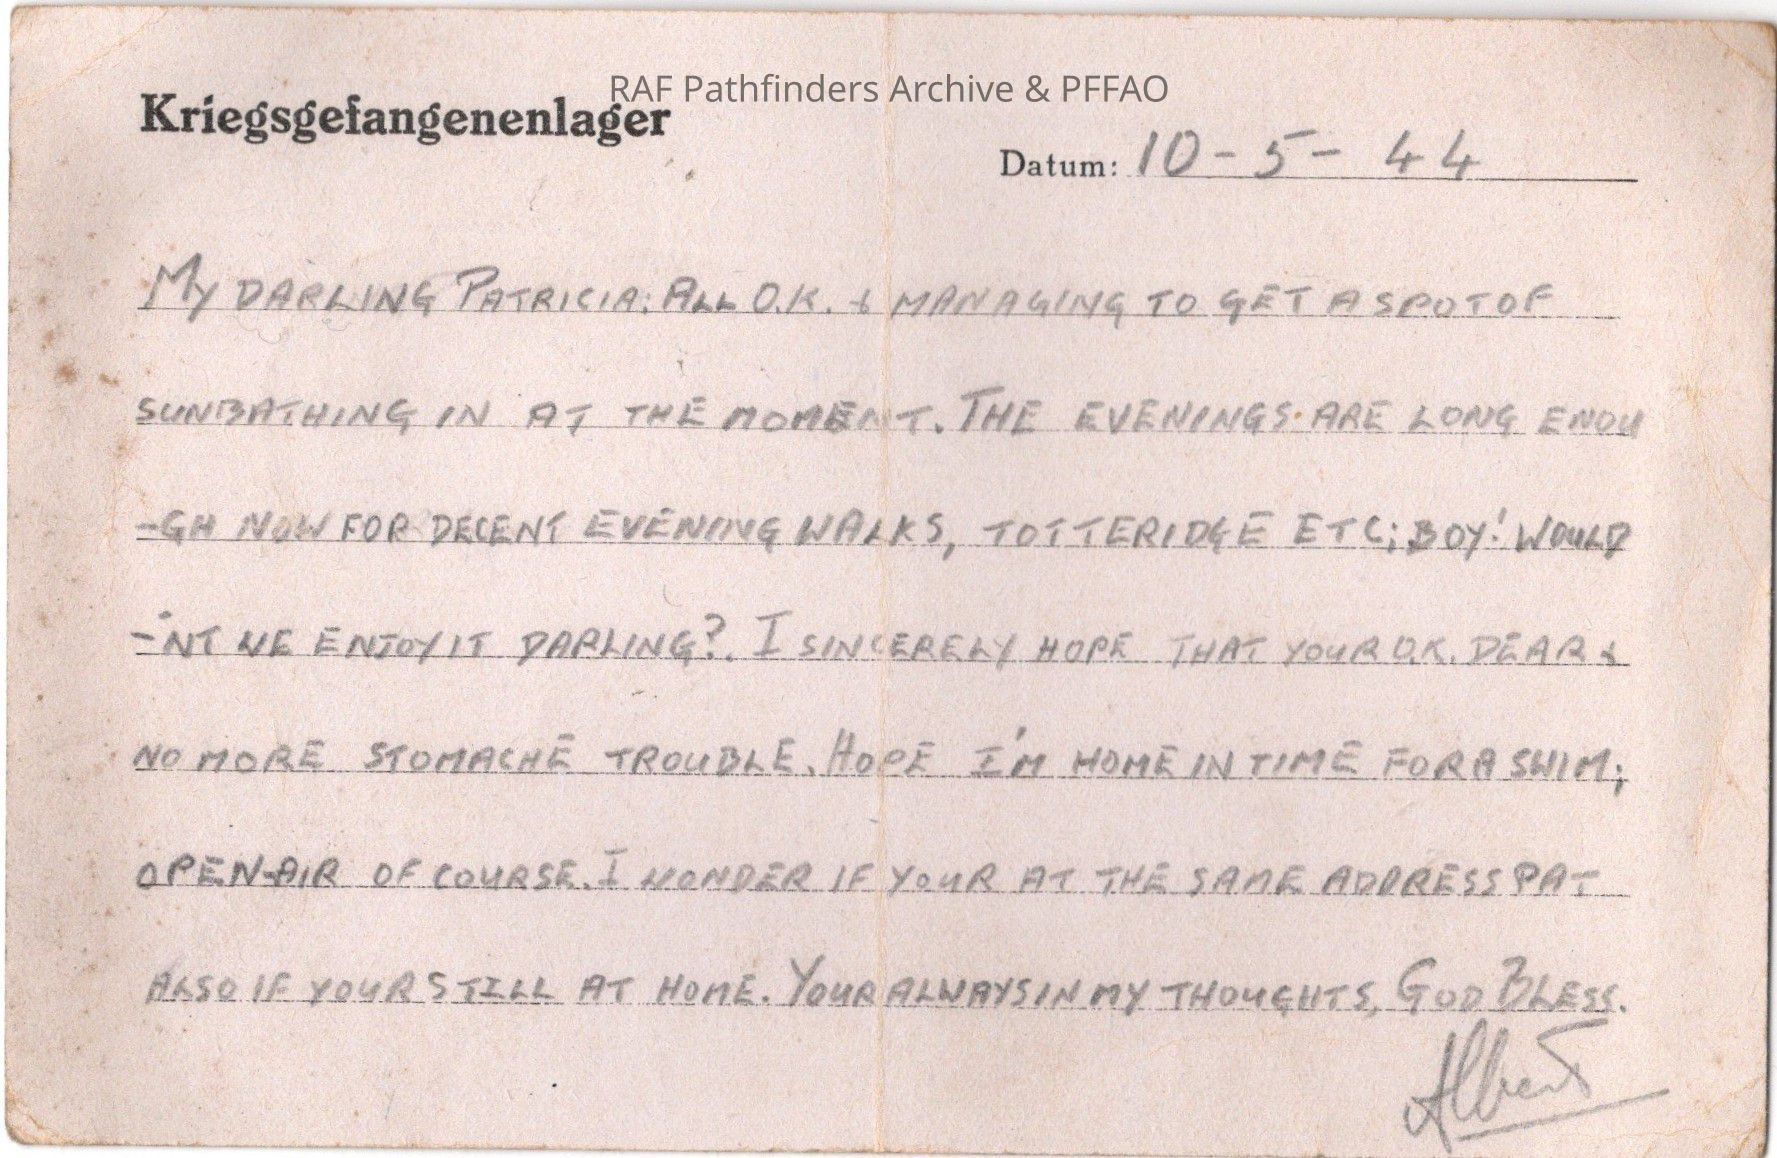 RAF Pathfinders Archive & PFFAO
Kriegsgefangenenlager
Datum: 10-5-44
MY DARLING PATRICIA: ALL O.K. & MANAGING TO GET A SPOT OF
SUNBATHING IN AT THE MOMENT. THE EVENINGS ARE LONG ENOU
-GH NOW FOR DECENT EVENING WALKS, TOTTERIDGE ETC; BOY! WOULD
-'NT WE ENJOY IT DARLING?. I SINCERELY HOPE THAT YOUR O.K. DEAR &
NO MORE STOMACHE TROUBLE. HOPE I'M HOME IN TIME FOR A SWIM;
OPEN-AIR OF COURSE. I WONDER IF YOUR AT THE SAME ADDRESS PAT
ALSO IF YOUR STILL AT HOME. YOUR ALWAYS IN MY THOUGHTS, GOD BLESS.
Albert